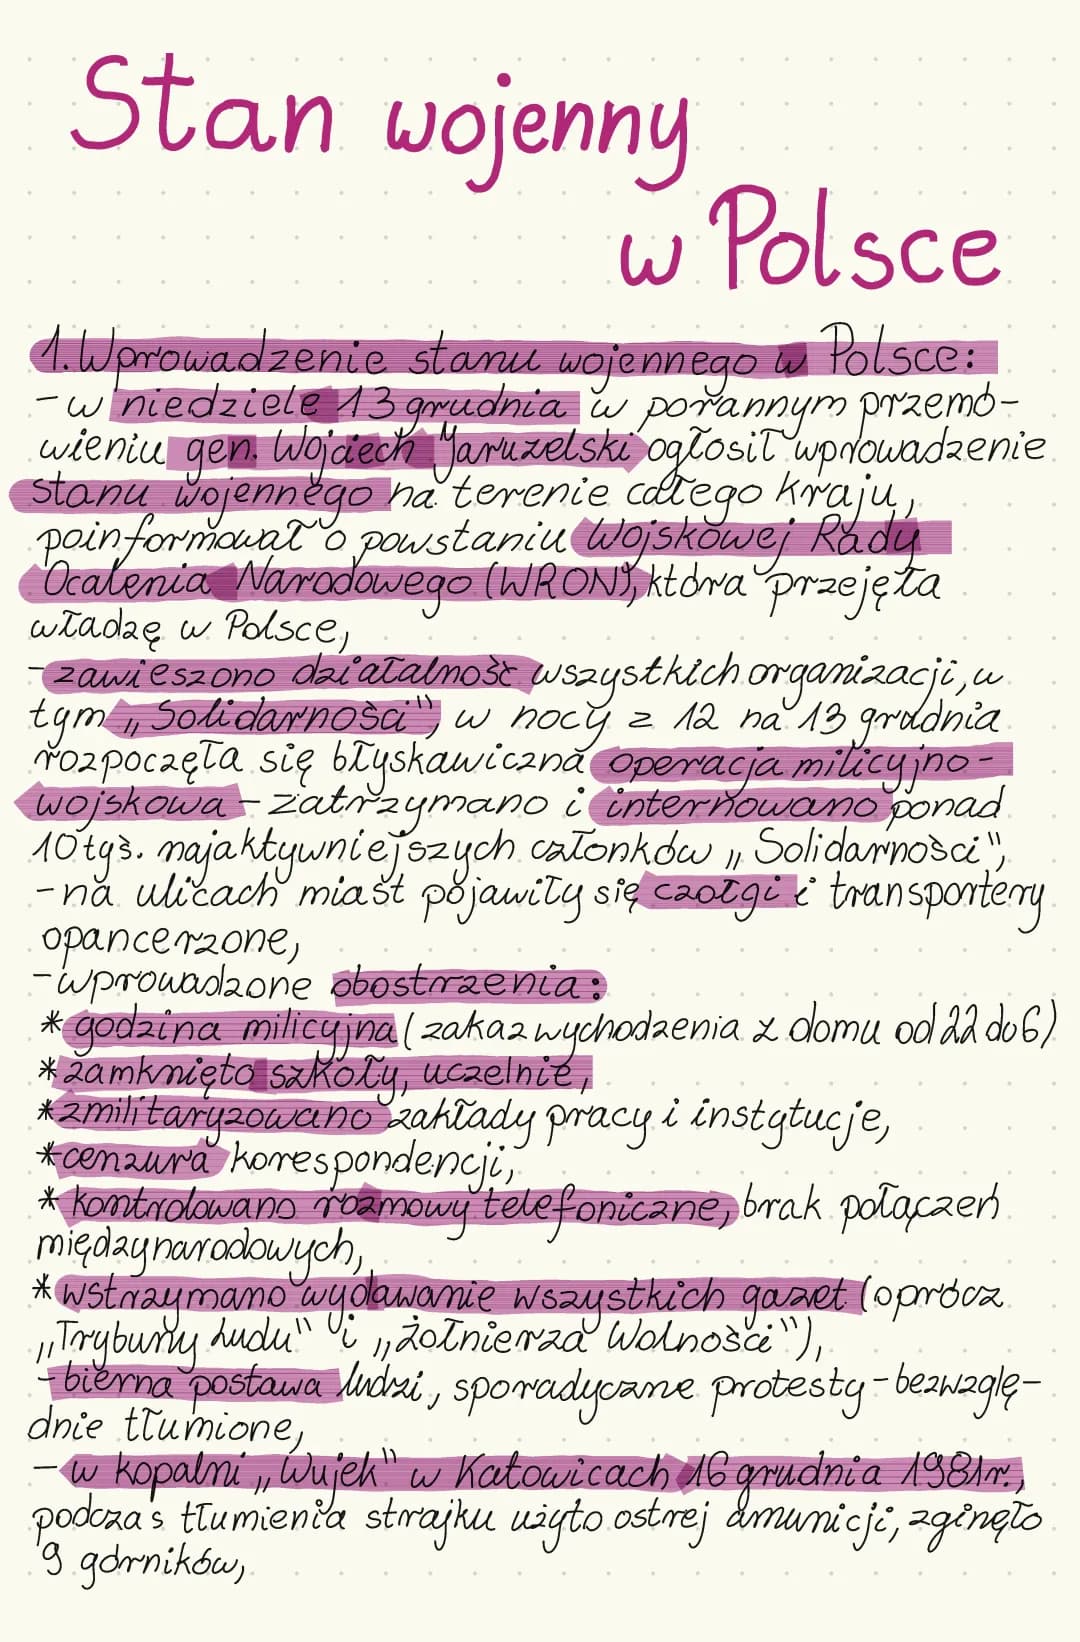 Stan wojenny
w Polsce
1. Wprowadzenie stanu wojennego w Polsce:
- w niedziele 13 grudnia w porannym przemó-
wieniu gen. Wojciech Jaruzelski ogłosił wprowadzenie
stanu wojennego na terenie całego kraju,
poinformował o powstaniu Wojskowej Rady
Ocalenia Narodowego (WRON), która przejęła
władzę w Polsce,
- zawieszono działalność wszystkich organizacji, w
tym „Solidarności", w nocy z 12 na 13 grudnia
rozpoczęła się błyskawiczna operacja milicyjno-
wojskowa - zatrzymano i internowano ponad
10 tyś. najaktywniejszych członków „Solidarności",
- na ulicach miast pojawiły się czołgi i transportery
opancerzone,
- wprowadzone obostrzenia:
* godzina milicyjna (zakaz wychodzenia z domu od 22 do 6)
* zamknięto szkoły, uczelnie,
* zmilitaryzowano zakłady pracy i instytucje,
* cenzura korespondencji,
* kontrolowano rozmowy telefoniczne, brak połączeń
międzynarodowych,
* wstrzymano wydawanie wszystkich gazet (oprócz
„Trybuny Ludu" i „Żołnierza Wolności"),
- bierna postawa ludzi, sporadyczne protesty - bezwzglę-
dnie tłumione,
- w kopalni „Wujek" w Katowicach 16 grudnia 1981r.,
podczas tłumienia strajku użyto ostrej amunicji, zginęło
9 górników,